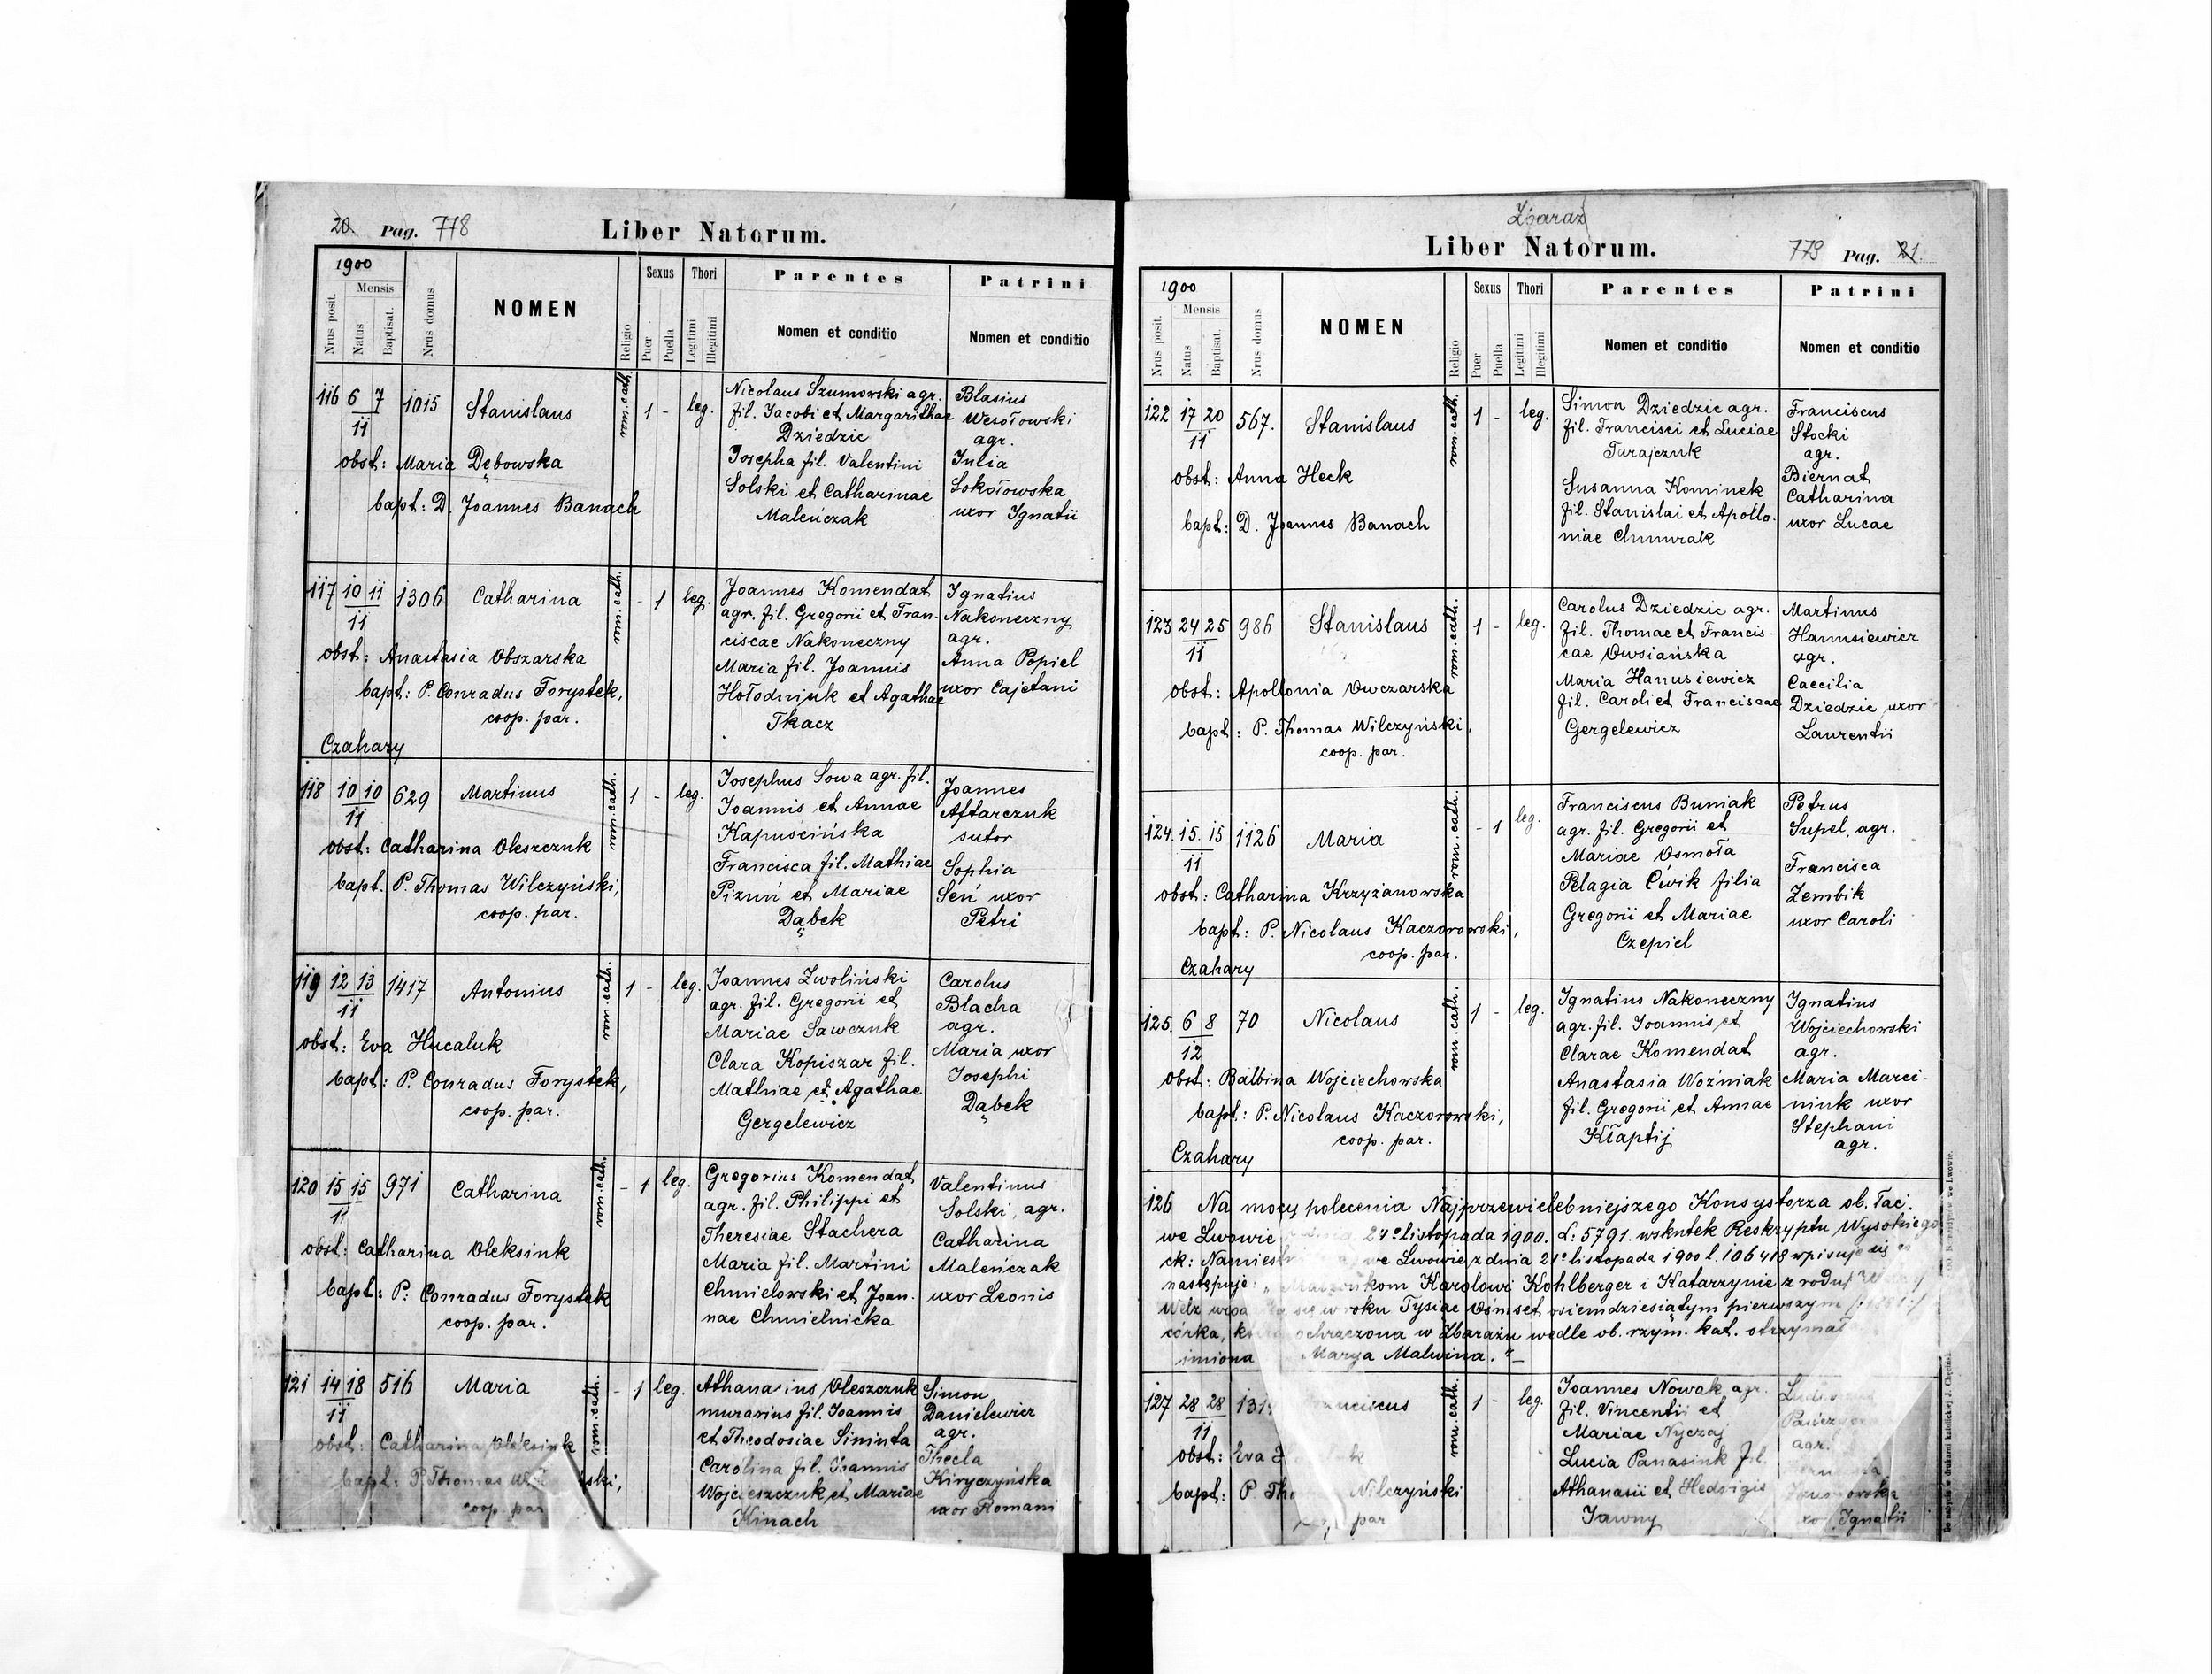 20. Pag. 778
Liber Natorum.
1900
Nrus posit.
Mensis
Natus
Baptisat.
Nrus domus
NOMEN
Religio
Sexus
Puer
Puella
Thori
Legitimi
Illegitimi
Parentes
Nomen et conditio
Patrini
Nomen et conditio
116 6 7 1015 Stanislaus rom. cath. 1 - leg.
11
obst: Maria Dębowska
bapt: D. Joannes Banach
Nicolaus Szumowski agr.
fil. Jacobi et Margarithae
Dziedzic
Josepha fil. Valentini
Solski et Catharinae
Maleńczak
Blasius
Wesołowski
agr.
Julia
Sokołowska
uxor Ignatii
117 10 11 1306 Catharina rom. cath. - 1 leg.
11
obst: Anastasia Obszarska
bapt: P. Conradus Forystek,
coop. par.
Czahary
Joannes Komendat
agr. fil. Gregorii et Fran-
ciscae Nakoneczny
Maria fil. Joannis
Hołodniuk et Agathae
Tkacz
Ignatius
Nakoneczny
agr.
Anna Popiel
uxor Cajetani
118 10 10 629 Martinus rom. cath. 1 - leg.
11
obst: Catharina Oleszczuk
bapt. P. Thomas Wilczyński,
coop. par.
Josephus Sowa agr. fil.
Joannis et Annae
Kapuścińska
Francisca fil. Mathiae
Pizuń et Mariae
Dąbek
Joannes
Aftarczuk
sutor
Sophia
Seń uxor
Petri
119 12 13 1417 Antonius rom. cath. 1 - leg.
11
obst: Eva Hucaluk
bapt: P. Conradus Forystek,
coop. par.
Joannes Zwoliński
agr. fil. Gregorii et
Mariae Sawczuk
Clara Kopiszar fil.
Mathiae et Agathae
Gergelewicz
Carolus
Blacha
agr.
Maria uxor
Josephi
Dąbek
120 15 15 971 Catharina rom. cath. - 1 leg.
11
obst: Catharina Oleksiuk
bapt: P. Conradus Forystek
coop. par.
Gregorius Komendat
agr. fil. Philippi et
Theresiae Stachera
Maria fil. Martini
Chmielowski et Joan-
nae Chmielnicka
Valentinus
Solski, agr.
Catharina
Maleńczak
uxor Leonis
121 14 18 516 Maria rom. cath. - 1 leg.
11
obst: Catharina Oleksiuk
bapt: P. Thomas
coop. par
Athanasius Oleszczuk
murarius fil. Joannis
et Theodosiae Sininta
Carolina fil. Joannis
Wojcieszczuk et Mariae
Kinach
Simon
Danielewicz
agr.
Thecla
Kiryczyńska
uxor Romani
Zbaraż
Liber Natorum.
779 Pag. 21.
1900
Nrus posit.
Mensis
Natus
Baptisat.
Nrus domus
NOMEN
Religio
Sexus
Puer
Puella
Thori
Legitimi
Illegitimi
Parentes
Nomen et conditio
Patrini
Nomen et conditio
122 17 20 567. Stanislaus rom. cath. 1 - leg.
11
obst: Anna Heck
bapt: D. Joannes Banach
Simon Dziedzic agr.
fil. Francisci et Luciae
Tarajczuk
Susanna Kominek
fil. Stanislai et Apollo-
niae Chmurak
Franciscus
Stocki
agr.
Biernat
Catharina
uxor Lucae
123 24 25 986 Stanislaus rom. cath. 1 - leg.
11
obst: Apollonia Owczarska
bapt: P. Thomas Wilczyński,
coop. par.
Carolus Dziedzic agr.
fil. Thomae et Francis-
cae Owsiańska
Maria Hanusiewicz
fil. Caroli et Franciscae
Gergelewicz
Martinus
Hanusiewicz
agr.
Caecilia
Dziedzic uxor
Laurentii
124. 15. 15 1126 Maria rom. cath. - 1 leg.
11
obst: Catharina Krzyżanowska
bapt: P. Nicolaus Kaczorowski,
coop. par.
Czahary
Franciscus Buniak
agr. fil. Gregorii et
Mariae Osmoła
Pelagia Ćwik filia
Gregorii et Mariae
Czepiel
Petrus
Supel, agr.
Francisca
Zembik
uxor Caroli
125. 6 8 70 Nicolaus rom. cath. 1 - leg.
12
obst: Balbina Wojciechowska
bapt: P. Nicolaus Kaczorowski,
coop. par.
Czahary
Ignatius Nakoneczny
agr. fil. Joannis et
Clarae Komendat
Anastasia Woźniak
fil. Gregorii et Annae
Kłaptij
Ignatius
Wojciechowski
agr.
Maria Marci-
niuk uxor
Stephani
agr.
126 Na mocy polecenia Najprzewielebniejszego Konsystorza ob. łac.
we Lwowie 24º listopada 1900. L: 5791. wskutek Reskryptu Wysokiego
ck: we Lwowie z dnia 21º listopada 1900 l. 106418 wpisuje się co
następuje: Karolowi Kohlberger i Katarzynie z rodu
Welz się w roku Tysiąc Ośmset osiemdziesiątym pierwszym /:1881:/
córka, ochrzczona w Zbarażu wedle ob. rzym. kat. otrzymała
imiona Marya Malwina."
127 28 28 rom. cath. 1 - leg.
11
obst: Eva
bapt: P. Wilczyński
par
Joannes Nowak agr.
fil. Vincentii et
Mariae Nyczaj
Lucia Panasiuk fil.
Athanasii et Hedvigis
Jawny
agr.
Ignatii